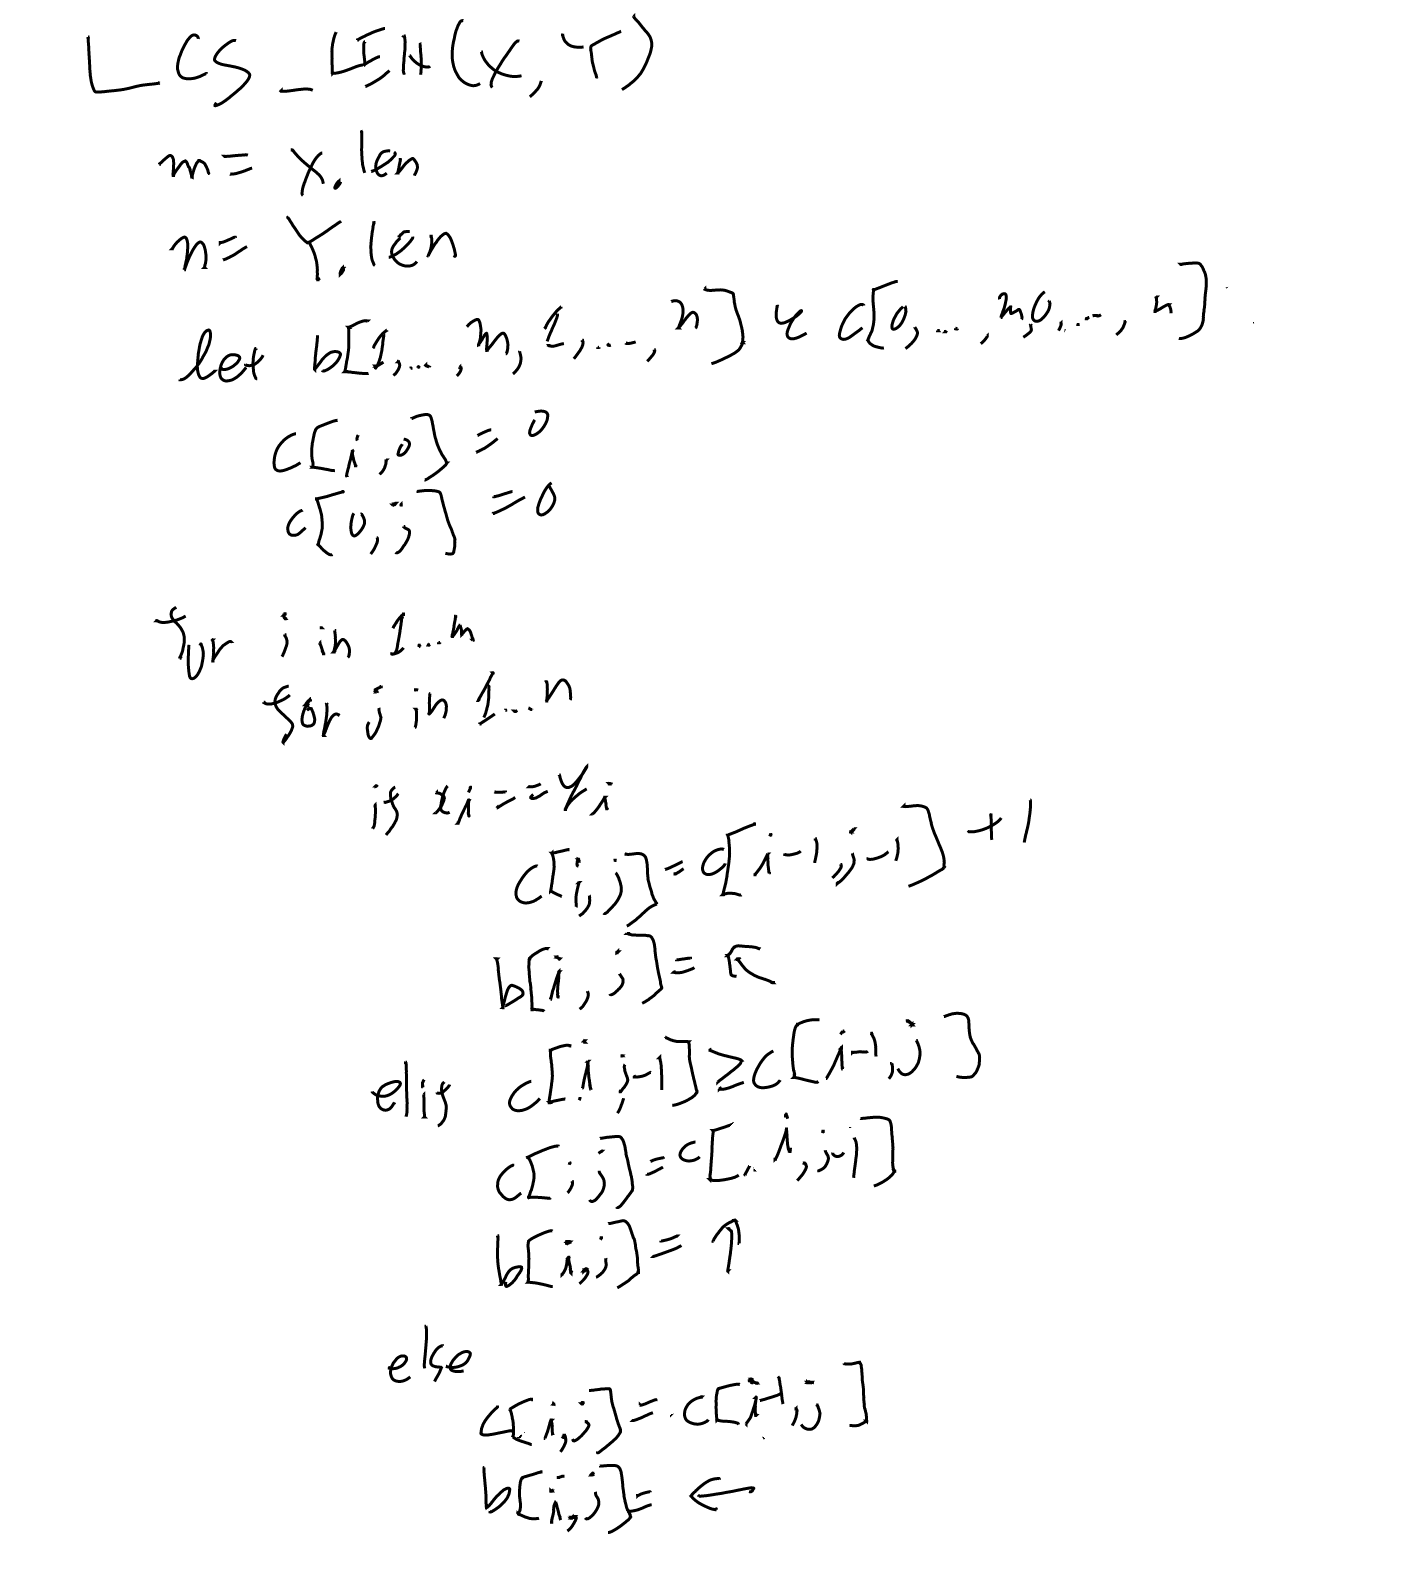 LCS_LEN(X, Y)
m = X.len
n = Y.len
let b[1,...,m, 1,...,n] & c[0,...,m,0,...,n]
c[i,0] = 0
c[0,j] = 0
for i in 1...m
for j in 1...n
if xi == Yi
c[i,j] = c[i-1,j-1] + 1
b[i,j] = ↖
elif c[i j-1] ≥ c[i-1,j]
c[i j] = c[, i,j-1]
b[i,j] = ↑
else
c[i,j] = c[i-1,j]
b[i,j] = ←